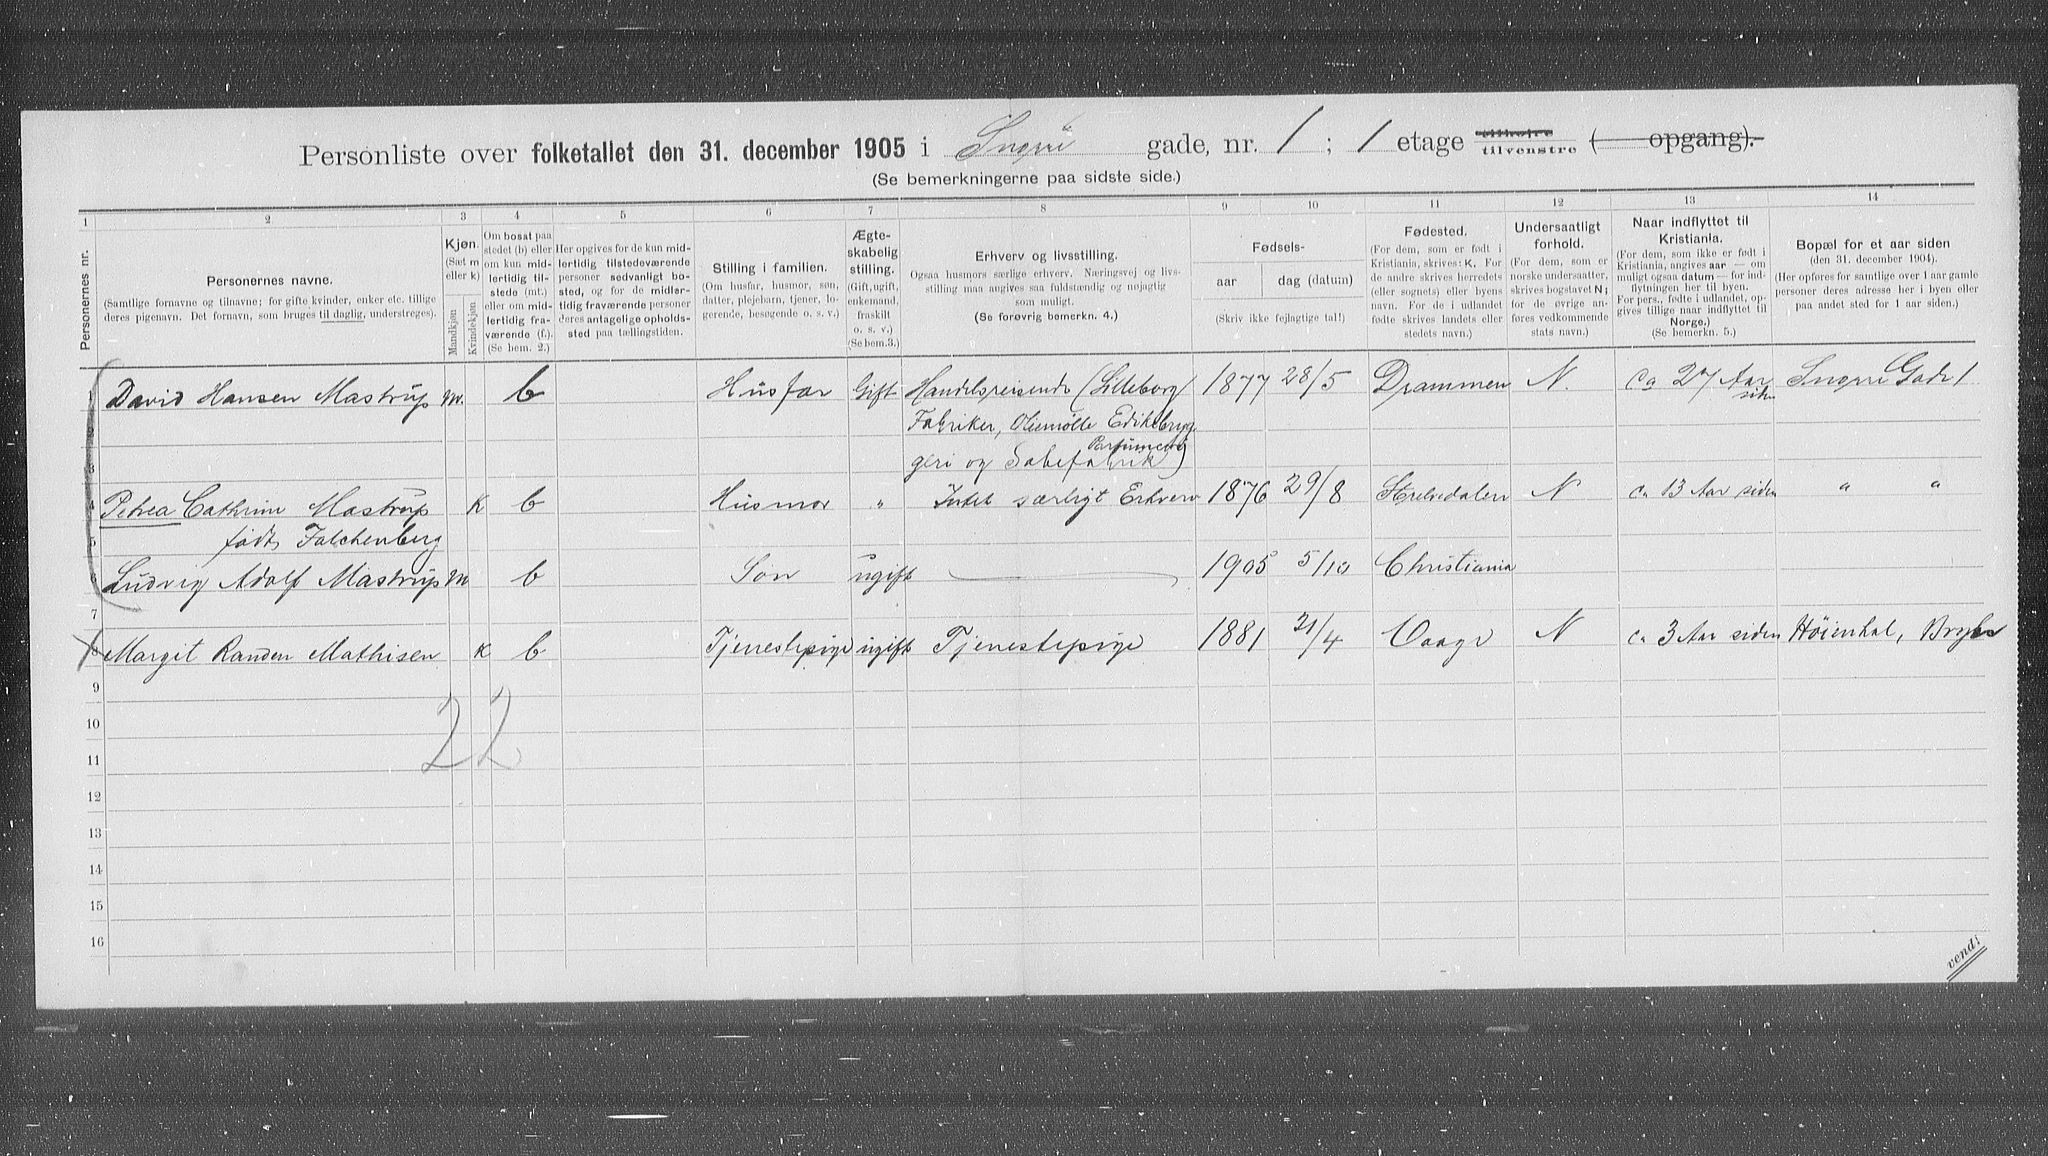 Personliste over folketallet den 31. december 1905 i Snorre gade, nr. 1; 1 etage tilhøire tilvenstre ( opgang).
(Se bemerkningerne paa sidste side.)
1 2 3 4 5 6 7 8 9 10 11 12 13 14
Personernes nr.
Personernes navne.
(Samtlige fornavne og tilnavne; for gifte kvinder, enker etc. tillige deres pigenavn. Det fornavn, som bruges til daglig, understreges).
Kjøn.
(Sæt m eller k)
Mandkjøn
Kvindekjøn
Om bosat paa stedet (b) eller om kun midlertidig tilstede (mt.) eller om midlertidig fraværende (f.).
(Se bem. 2.)
Her opgives for de kun midlertidig tilstedeværende personer sedvanligt bosted, og for de midlertidig fraværende personer deres antagelige opholdssted paa tællingstiden.
Stilling i familien.
(Om husfar, husmor, søn, datter, plejebarn, tjener, logerende, besøgende o. s. v.)
Ægteskabelig stilling.
(Gift, ugift, enkemand, fraskilt o. s. v.)
(Se bem.3.)
Erhverv og livsstilling.
Ogsaa husmors særlige erhverv. Næringsvej og livsstilling maa angives saa fuldstændig og nøjagtig som muligt.
(Se forøvrig bemerkn. 4.)
Fødsels-
aar
dag (datum)
(Skriv ikke fejlagtige tal!)
Fødested.
(For dem, som er født i Kristiania, skrives: K. For de andre skrives herredets (eller sognets) eller byens navn. For de i udlandet fødte skrives landets eller stedets navn.)
Undersaatligt forhold.
(For dem, som er norske undersaatter, skrives bogstavet N; for de øvrige anføres vedkommende stats navn.)
Naar indflyttet til Kristiania.
(For dem, som ikke er født i Kristiania, angives aar — om muligt ogsaa datum — for indflytningen her til byen. For pers., fødte i udlandet, opgives tillige naar indflyttet til Norge.)
(Se bemerkn. 5.)
Bopæl for et aar siden
(den 31. december 1904).
(Her opføres for samtlige over 1 aar gamle personer deres adresse her i byen eller paa andet sted for 1 aar siden.)
1 David Hansen Mastrup m. b Husfar Gift Handelsreisende (Lilleborg 1877 28/5 Drammen N ca 27 Aar siden Snorre Gade 1
2 Fabriker, Oliemølle Edikebryg
3 geri og Parfumeri Sæbefabrik)
4 Petrea Cathrine Mastrup K b Husmor " Intet særligt Erhverv 1876 29/8 N ca 13 Aar siden " "
5 født Falchenberg
6 Ludvig Adolf Mastrup m b Søn ugift — 1905 5/10 Christiania
7
8 Margit Randen Mathisen K b Tjenestepige ugift Tjenestepige 1881 21/4 Vaage N ca 3 Aar siden Høienhal, Bryn
9
22
10
11
12
13
14
15
16
vend!